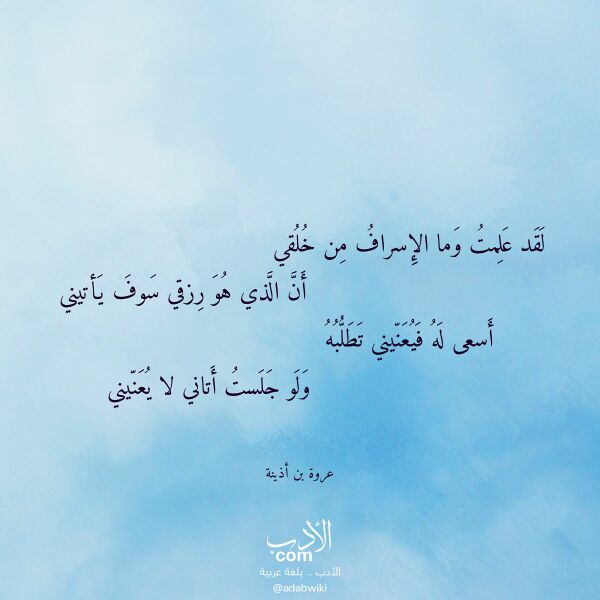 لَقَد عَلِمتُ وَما الإِسرافُ مِن خُلُقي
أَنَّ الَّذي هُوَ رِزقي سَوفَ يَأتيني
أَسعى لَهُ فَيُعَنّيني تَطَلُّبُهُ
وَلَو جَلَستُ أَتاني لا يُعَنّيني
عروة بن أذينة
الأدب
com
الأدب .. بلغة عربية
@adabwiki